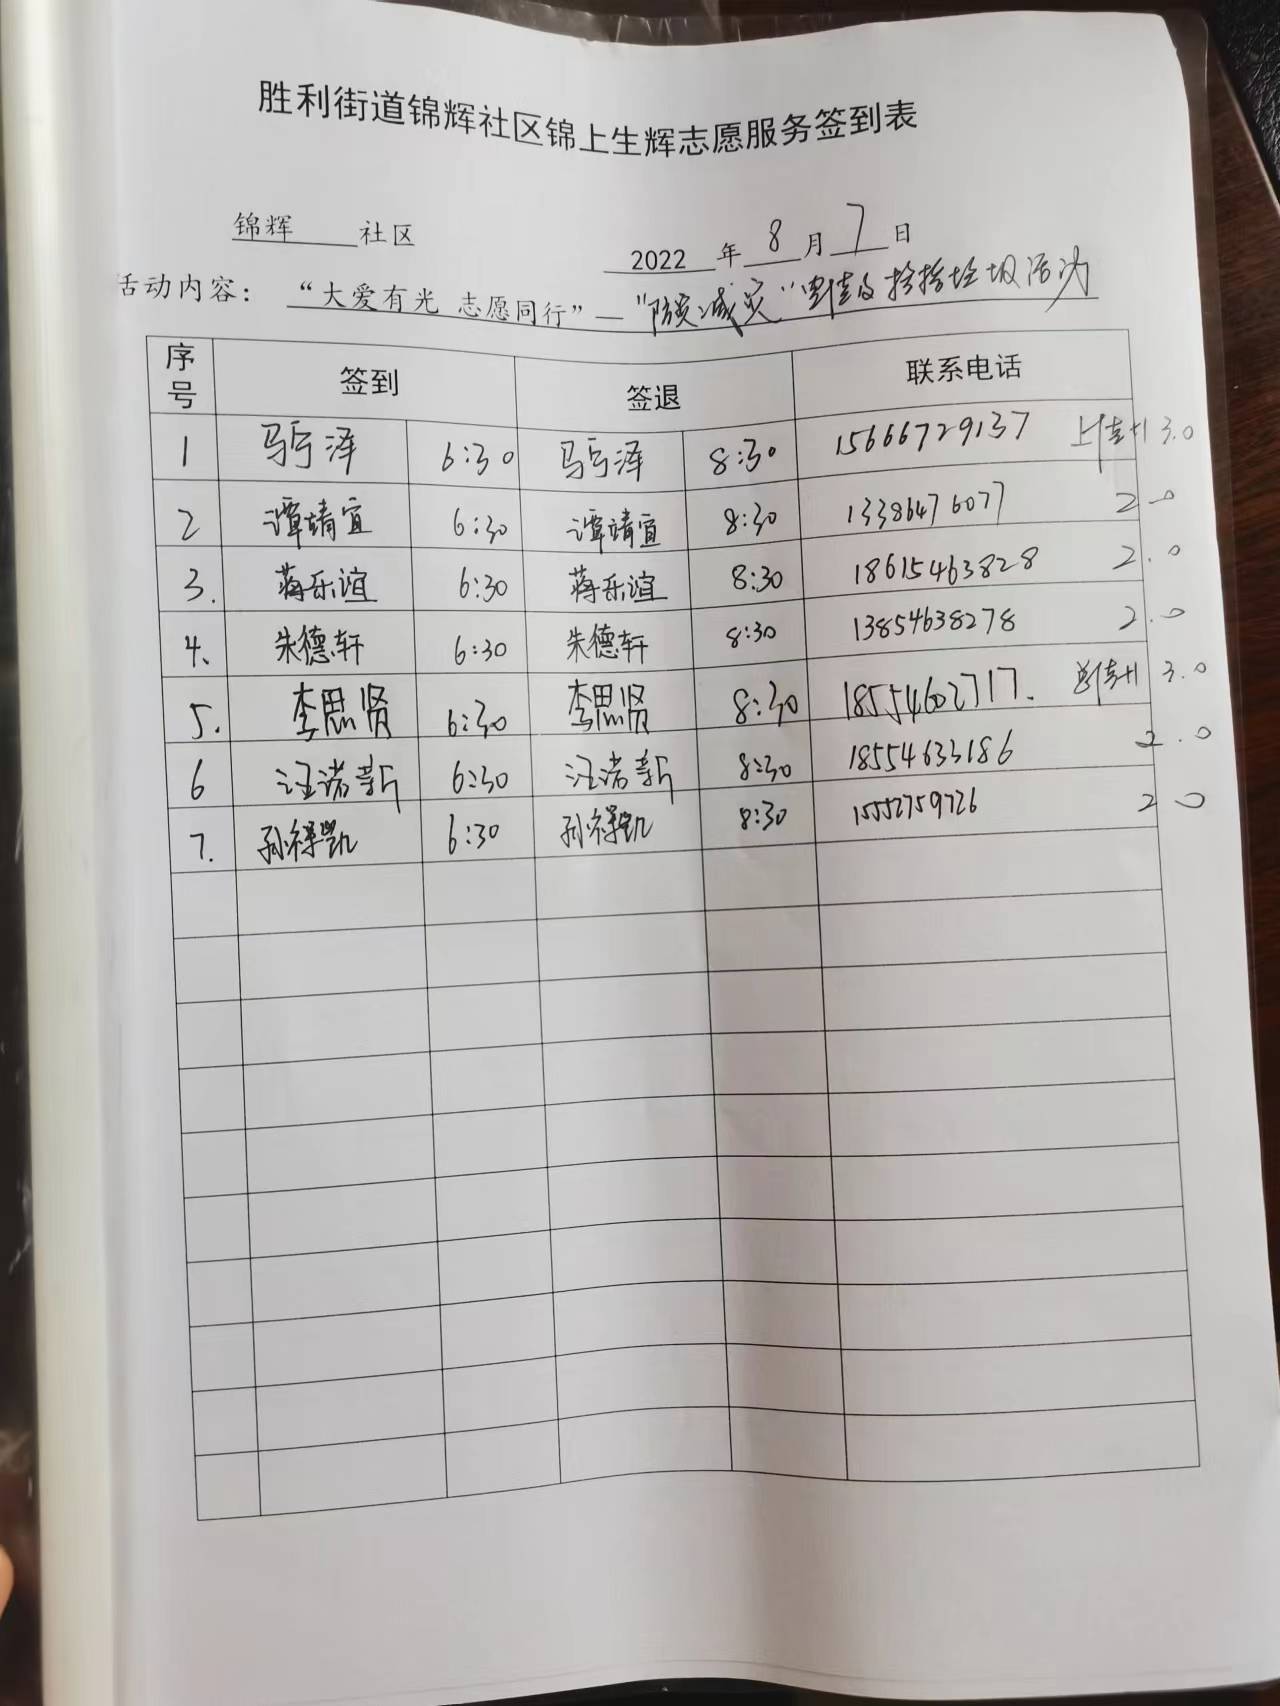 胜利街道锦辉社区锦上生辉志愿服务签到表
锦辉 社区
2022 年 8 月 7 日
活动内容: “大爱有光 志愿同行”—“防灾减灾”宣传及捡拾垃圾活动
序号 签到 签退 联系电话
1 马亏泽 6:30 马亏泽 8:30 15666729137 3.0
2 谭靖宜 6:30 谭靖宜 8:30 13386476077 2.0
3. 蒋乐谊 6:30 蒋乐谊 8:30 18615463828 2.0
4、 朱德轩 6:30 朱德轩 8:30 13854638278 2.0
5. 李思贤 6:30 李思贤 8:30 18554602717. 3.0
6 汪诺新 6:30 汪诺新 8:30 18554633186 2.0
7. 孙得凯 6:30 孙得凯 8:30 15552759726 2.0